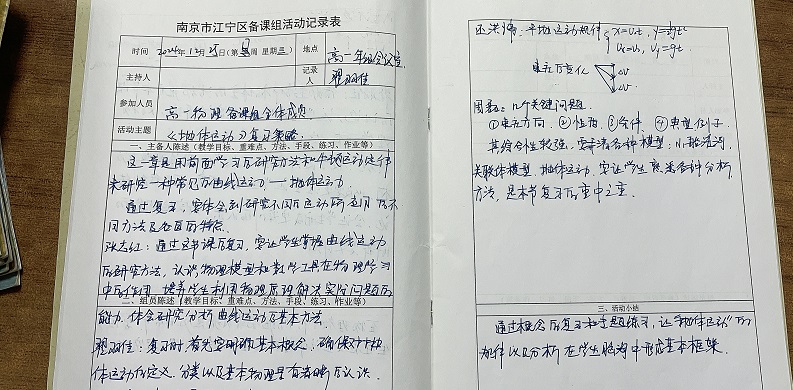 南京市江宁区备课组活动记录表
时间
2024年12月25日(第 周 星期三)
地点
高一年级会议室
主持人
记录人
翟羽佳
参加人员
高一物理备课组全体成员
活动主题
《抛体运动》复习策略
一、主备人陈述(教学目标、重难点、方法、手段、练习、作业等)
这一章是用前面学习的研究方法和牛顿运动定律
来研究一种常见的曲线运动——抛体运动
通过复习,要体会到研究不同的运动所应用的不
同方法及各自的特点.
张大红:通过这节课的复习,要让学生掌握曲线运动
的研究方法,认识物理模型和数学工具在物理学习
中的作用,培养学生利用物理原理解决实际问题的
二、组员陈述(教学目标、重难点、方法、手段、练习、作业等)
能力,体会研究分析曲线运动的基本方法.
翟羽佳:复习时,首先要明确基本概念,确保对抛
体运动的定义、分类以及基本物理量有清晰的认识.
平抛运动规律 x=v₀t, y=½gt²
vₓ=v₀, v_y=gt.
速度的变化
Δv
Δv
几个关键问题.
①速度方向. ②性质. ③条件. ④典型例子
其综合性较强,要弄清各种模型:小船渡河,
关联体模型,抛体运动,要让学生熟悉各种分析
方法,是本节复习的重中之重.
三、活动小结
通过概念的复习和专题练习,让“抛体运动”的
规律以及分析在学生脑海中形成基本框架.